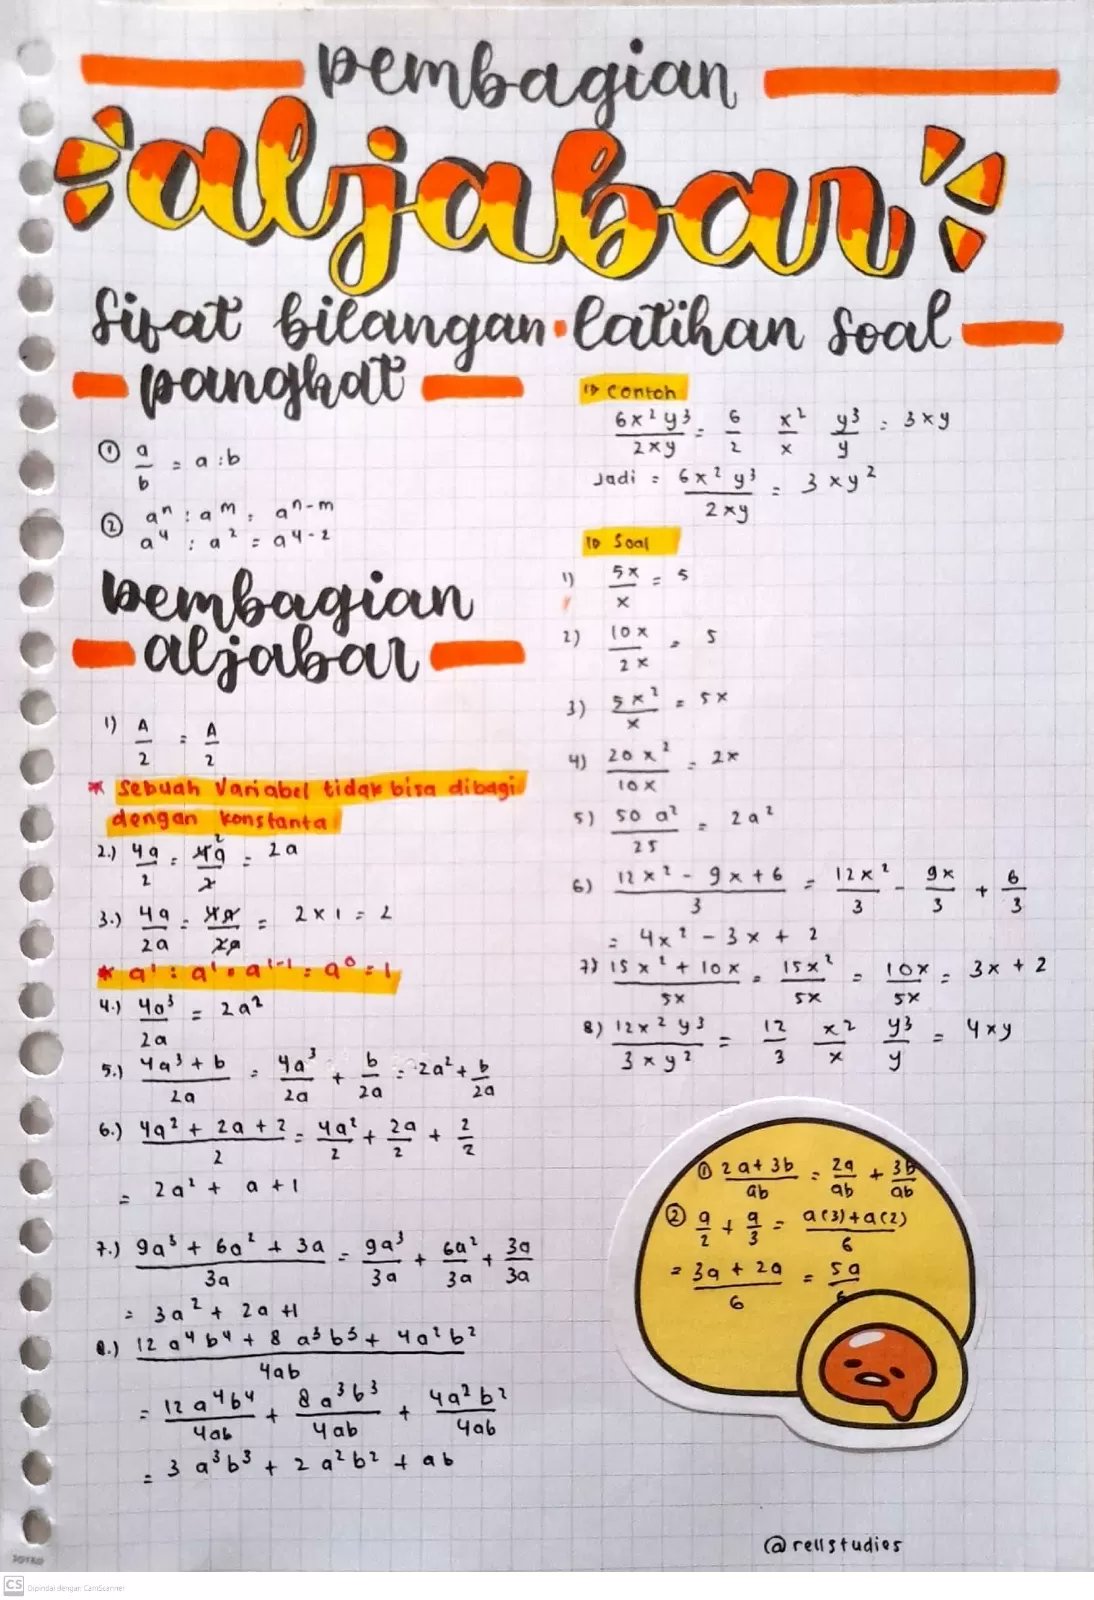 pembagian
aljabar
sifat bilangan
pangkat
① a/b = a : b
② aⁿ : aᵐ = aⁿ⁻ᵐ
a⁴ : a² = a⁴⁻²
pembagian
aljabar
1) A/2 = A/2
* Sebuah Variabel tidak bisa dibagi
dengan konstanta
2.) 4a/2 = 4a²/2 = 2a
3.) 4a/2a = 4a/2a = 2 x 1 = 2
* a¹ : a¹ = a¹⁻¹ = a⁰ = 1
4.) 4a³/2a = 2a²
5.) 4a³ + b/2a = 4a³/2a + b/2a = 2a² + b/2a
6.) 4a² + 2a + 2/2 = 4a²/2 + 2a/2 + 2/2
= 2a² + a + 1
7.) 9a³ + 6a² + 3a/3a = 9a³/3a + 6a²/3a + 3a/3a
= 3a² + 2a + 1
8.) 12 a⁴ b⁴ + 8 a³ b³ + 4a² b²/4ab
= 12 a⁴ b⁴/4ab + 8 a³ b³/4ab + 4a² b²/4ab
= 3 a³ b³ + 2 a² b² + ab
latihan soal
Contoh
6x² y³/2xy = 6/2 x²/x y³/y = 3xy
Jadi = 6x² y³/2xy = 3 xy²
Soal
1) 5x/x = 5
2) 10x/2x = 5
3) 5x²/x = 5x
4) 20x²/10x = 2x
5) 50 a²/25 = 2a²
6) 12x² - 9x + 6/3 = 12x²/3 - 9x/3 + 6/3
= 4x² - 3x + 2
7) 15x² + 10x/5x = 15x²/5x = 10x/5x = 3x + 2
8) 12x² y³/3xy² = 12/3 x²/x y³/y = 4xy
① 2a + 3b/ab = 2a/ab + 3b/ab
② a/2 + a/3 = a(3) + a(2)/6
= 3a + 2a/6 = 5a/6
@rellstudies
JOYKO
CS Dipindai dengan CamScanner